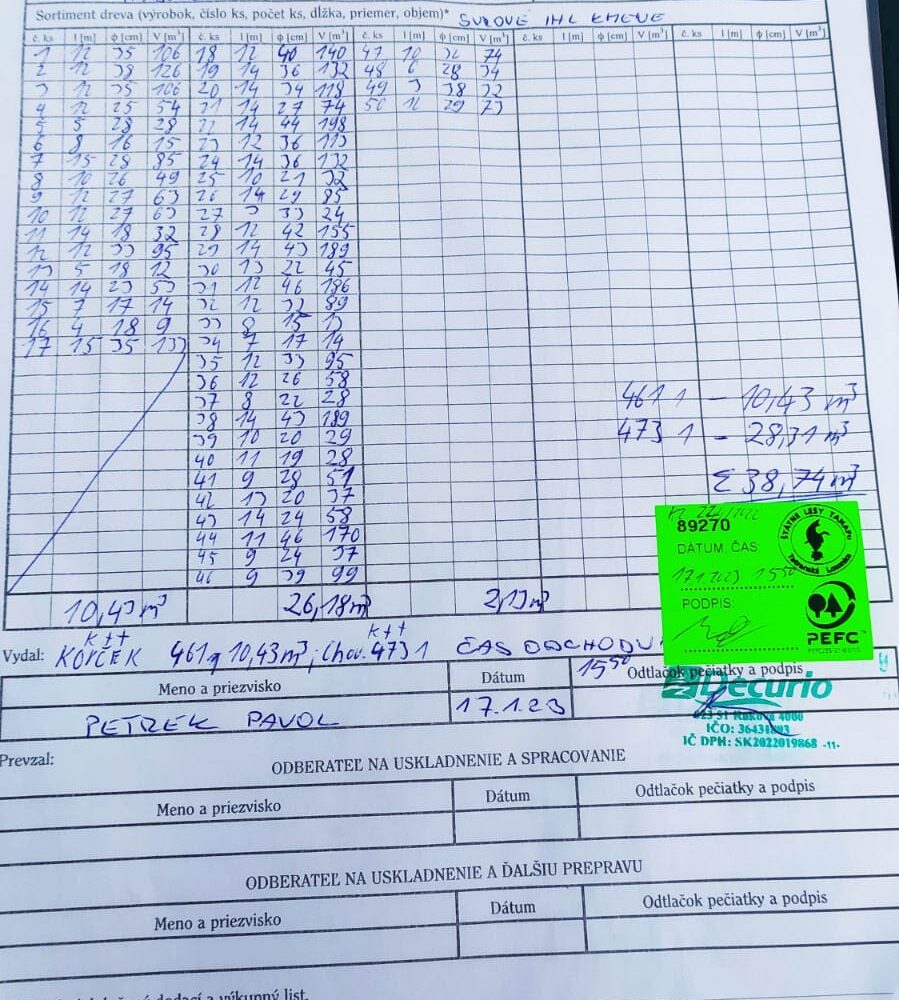 Sortiment dreva (výrobok, číslo ks, počet ks, dĺžka, priemer, objem)* SUROVÉ IHL KMENE
č. ks l [m] ϕ [cm] V [m³] č. ks l [m] ϕ [cm] V [m³] č. ks l [m] ϕ [cm] V [m³] č. ks l [m] ϕ [cm] V [m³] č. ks l [m] ϕ [cm] V [m³]
1 12 35 106 18 12 40 140 47 10 32 74
2 12 38 126 19 14 36 132 48 6 28 34
3 12 35 106 20 14 34 118 49 3 38 32
4 12 25 54 21 14 27 74 50 12 29 73
5 5 28 28 22 14 44 198
6 8 16 15 23 12 36 113
7 15 28 85 24 14 36 132
8 10 26 49 25 10 21 32
9 12 27 63 26 14 29 85
10 12 27 63 27 3 33 24
11 14 18 32 28 12 42 155
12 12 33 95 29 14 43 189
13 5 18 12 30 13 22 45
14 14 23 53 31 12 46 186
15 7 17 14 32 12 32 89
16 4 18 9 33 8 15 13
17 15 35 133 34 7 17 14
35 12 33 95
36 12 26 58
37 8 22 28
38 14 43 189
39 10 20 29
40 11 19 28
41 9 28 51
42 13 20 37
43 14 24 58
44 11 46 170
45 9 24 37
46 9 39 99
461 1 - 10,43 m³
473 1 - 28,31 m³
Σ 38,74 m³
10,43 m³ 26,18 m³ 2,13 m³
89270
DÁTUM, ČAS
17.1.2023 15:50
PODPIS:
ŠTÁTNE LESY TANAPu
Tatranská Lomnica
PEFC
Vydal: KOPČEK 461 10,43 m³; Chov. 473 1 ČAS ODCHODU
15:50
Meno a priezvisko Dátum Odtlačok pečiatky a podpis
PETREK PAVOL 17.1.23
Decurio
023 51 Raková 4000
IČO: 36431893
IČ DPH: SK2022019868 -11-
Prevzal: ODBERATEĽ NA USKLADNENIE A SPRACOVANIE
Meno a priezvisko Dátum Odtlačok pečiatky a podpis
ODBERATEĽ NA USKLADNENIE A ĎALŠIU PREPRAVU
Meno a priezvisko Dátum Odtlačok pečiatky a podpis
dodací a výkupný list.